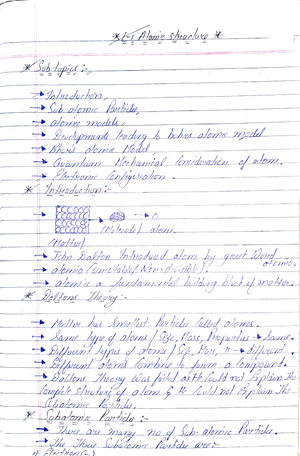 * L-1 Atomic Structure *
* Sub topics :-
→ Introduction,
→ Sub atomic Particles,
→ atomic models,
→ Developments leading to bohrs atomic model
→ Atomic Model,
→ Quantum Mechanical Consideration of atom.
→ Electronic Configuration.
* Introduction :-
(Molecule) atom.
(Matter)
→ John Dalton Introduced atom by greek Word
atomio.
→ atomio (Uncutable/Non-divisible).
→ atom is a fundamental building block of matter.
* Daltons Theory :-
→ Matter has Smallest Particles Called atoms.
→ Same type of atoms / Size, Mass, Properties → Same.
→ Different types of atoms / Size, Mass, " → different.
→ Different atoms Combine to form a Compound.
→ Daltons Theory Was failed as it Could not Explain the
Complete structure of atom & it Could not Explain the
Subatomic Particles.
* Subatomic Particles :-
→ There are many no of Sub-atomic Particles.
→ The Three Subatomic Particles are :-
Electron